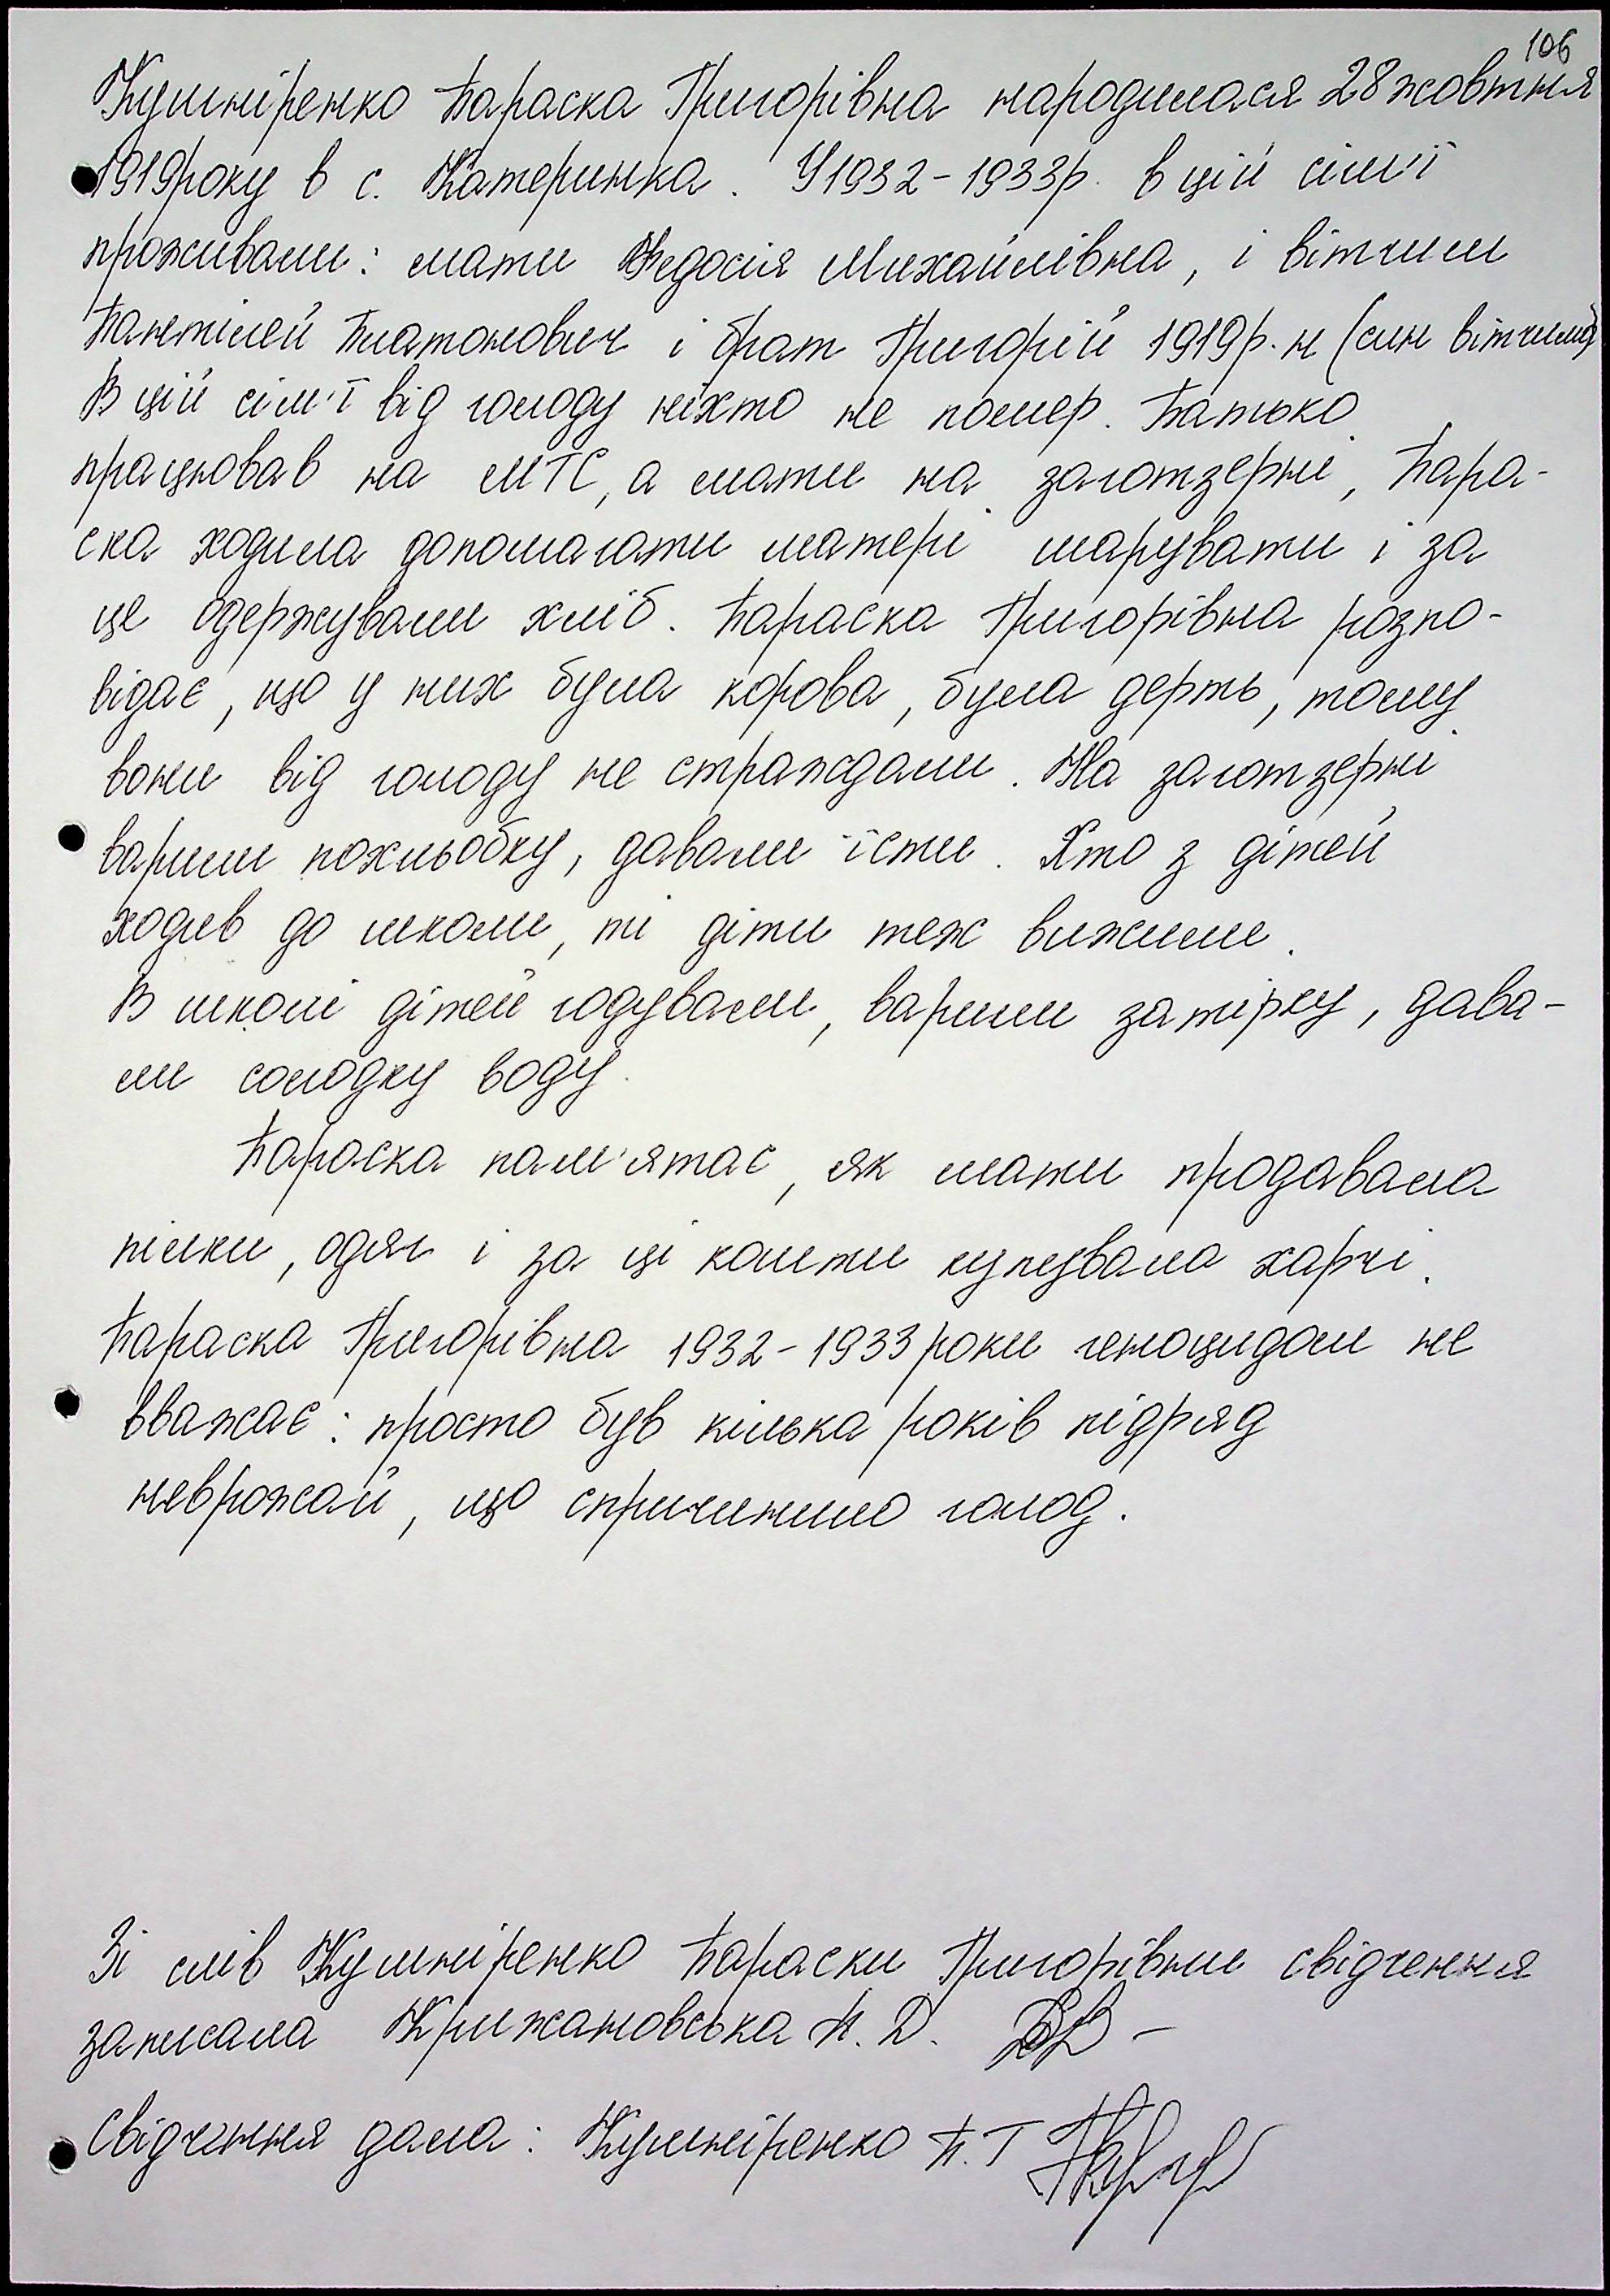 106
Кушніренко Параска Григорівна народилася 28 жовтня
1919року в с. Катеринка. У 1932-1933р. в цій сім'ї
проживали: мати Федосія Михайлівна, і вітчим
Пантілей Платонович і брат Григорій 1919р.н (син вітчима)
В цій сім'ї від голоду ніхто не помер. Батько
працював на МТС, а мати на заготзерні, Пара-
ска ходила допомагати матері шарувати і за
це одержували хліб. Параска Григорівна розпо-
відає, що у них була корова, була дерть, тому
вони від голоду не страждали. На заготзерні
варили похльобку, давали їсти. Хто з дітей
ходив до школи, ті діти теж вижили.
В школі дітей годували, варили затірку, дава-
ли солодку воду.
Параска пам'ятає, як мати продавала
пілки, одяг і за ці кошти купувала харчі.
Параска Григорівна 1932-1933 роки геноцидом не
вважає: просто був кілька років підряд
неврожай, що спричинило голод.
Зі слів Кушніренко Параски Григорівни свідчення
записала Крижановська Н. Д.
Свідчення дала: Кушніренко П.Г